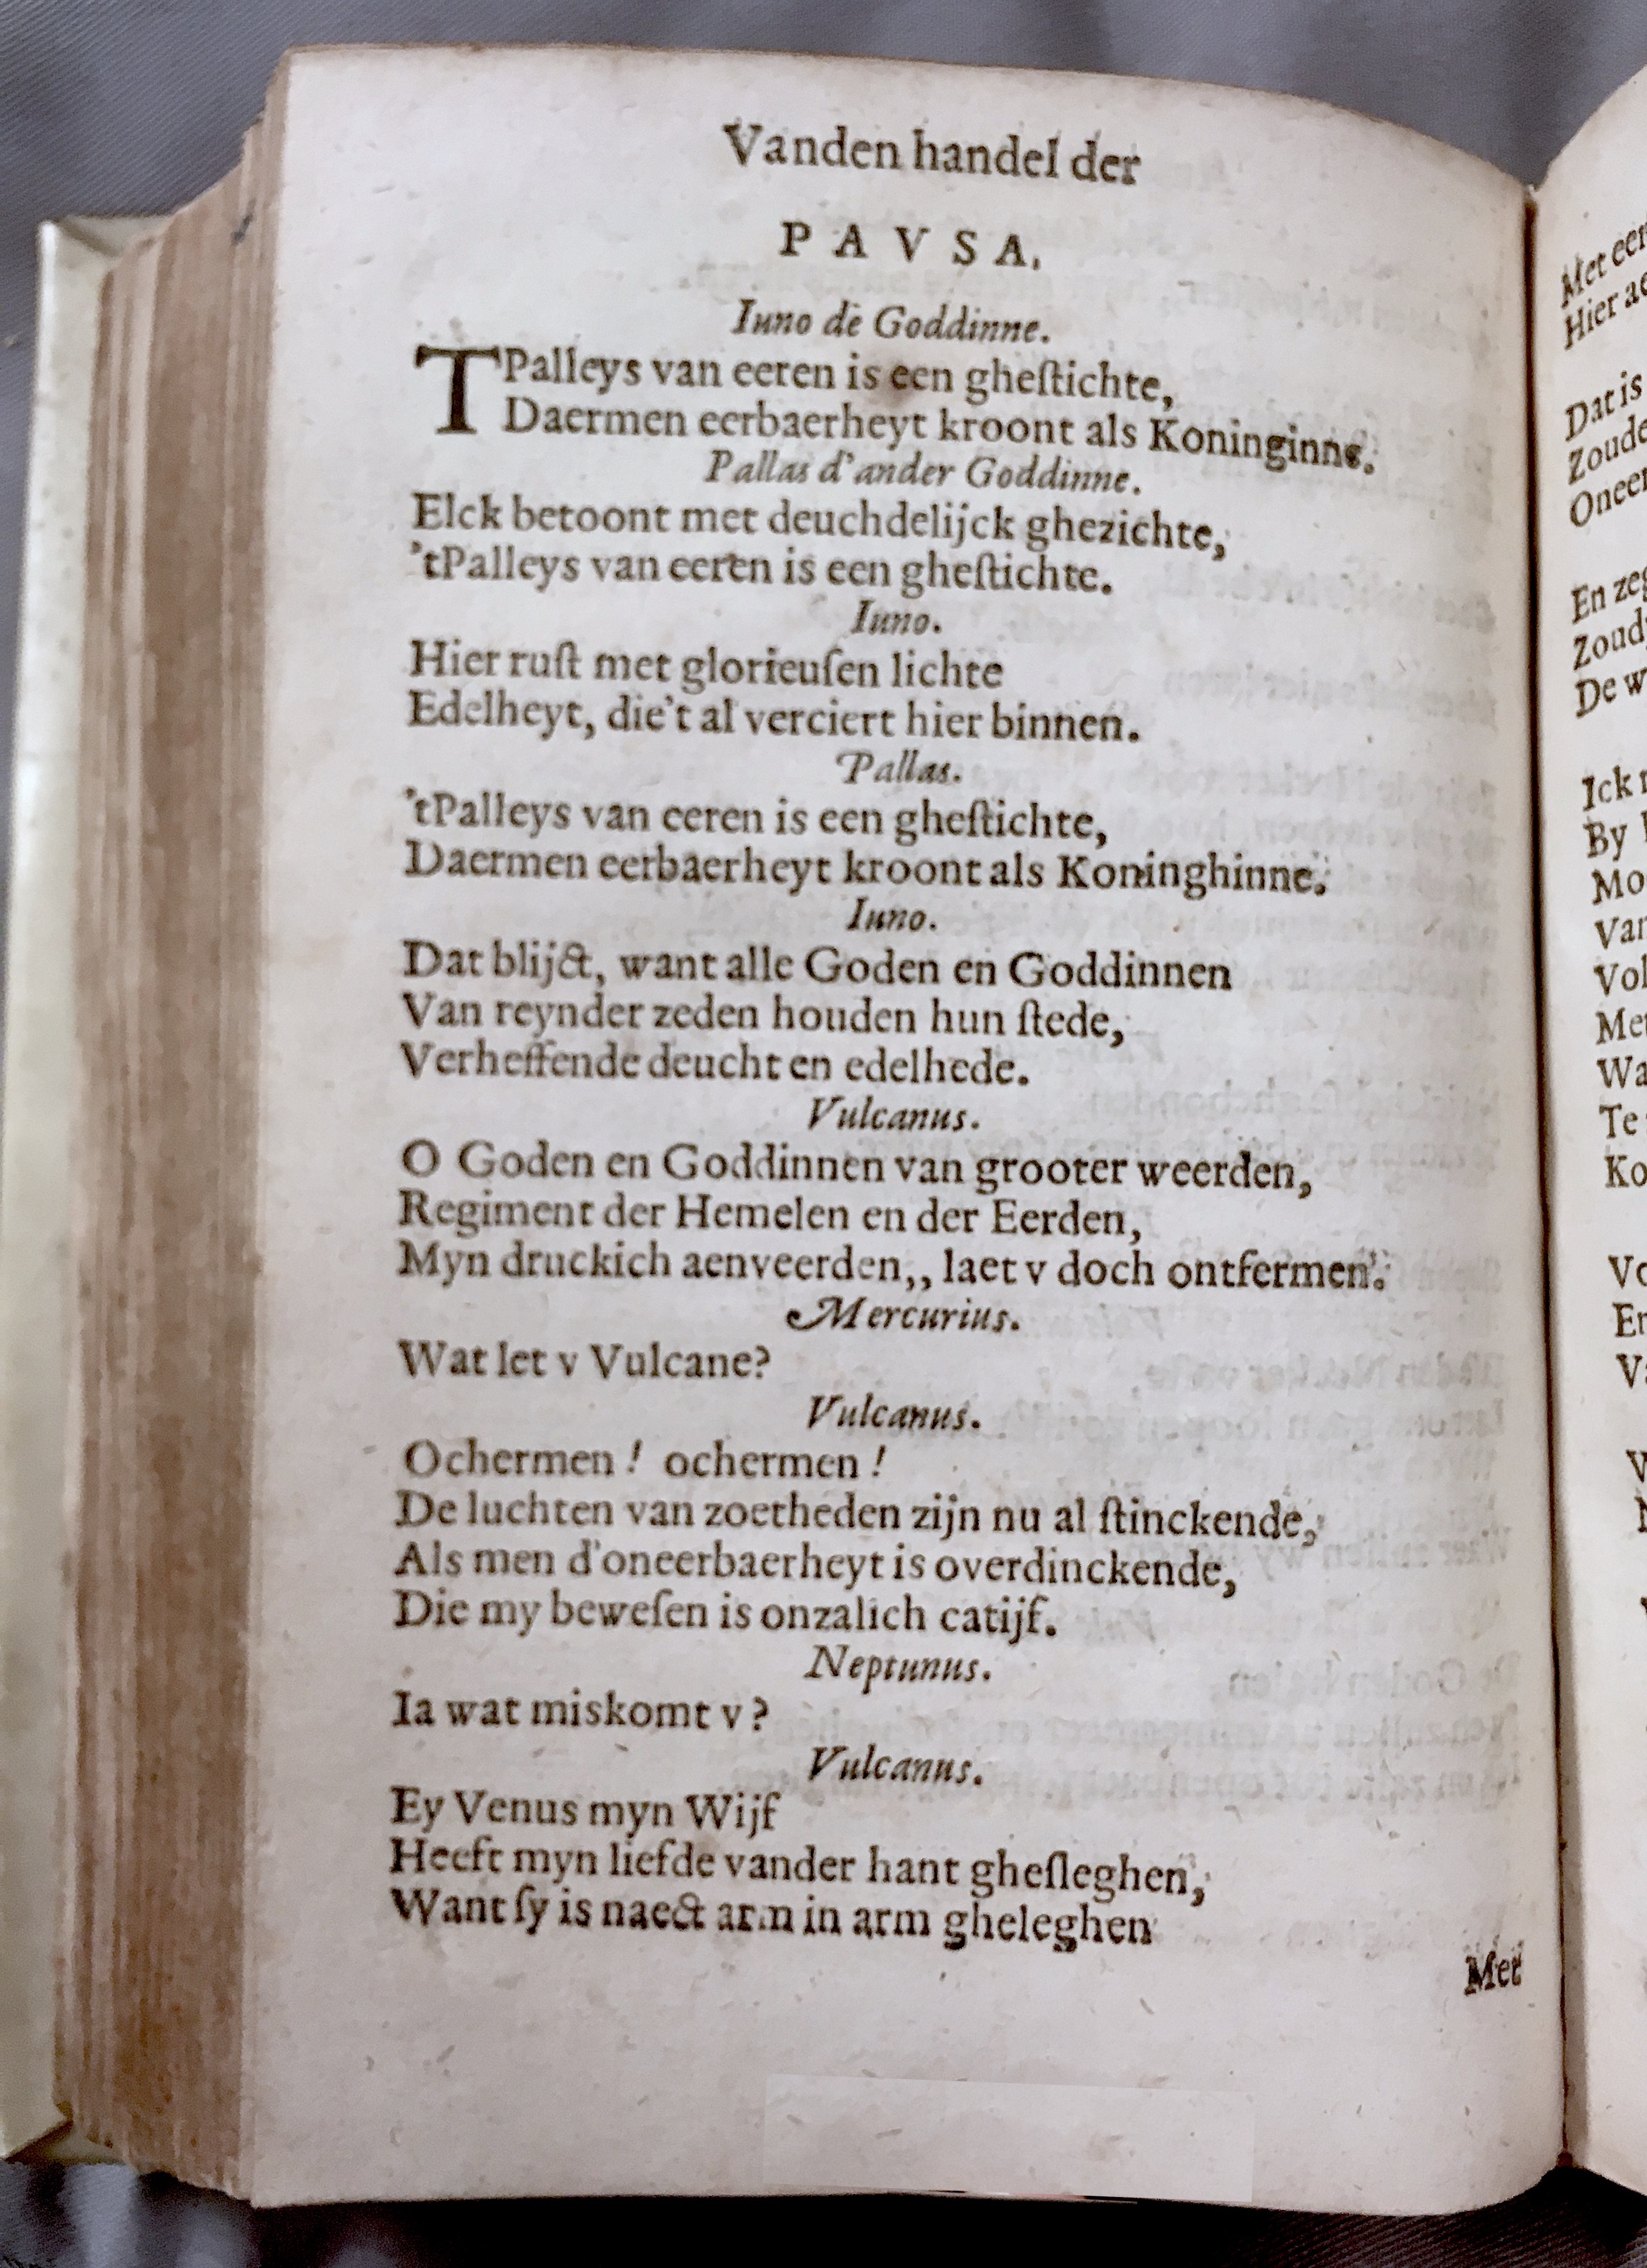 Vanden handel der
PAVSA.
Iuno de Goddinne.
TPalleys van eeren is een gheſtichte,
Daermen eerbaerheyt kroont als Koninginne.
Pallas d'ander Goddinne.
Elck betoont met deuchdelijck ghezichte,
'tPalleys van eeren is een gheſtichte.
Iuno.
Hier ruſt met glorieuſen lichte
Edelheyt, die't al verciert hier binnen.
Pallas.
'tPalleys van eeren is een gheſtichte,
Daermen eerbaerheyt kroont als Koninghinne.
Iuno.
Dat blijct, want alle Goden en Goddinnen
Van reynder zeden houden hun ſtede,
Verheffende deucht en edelhede.
Vulcanus.
O Goden en Goddinnen van grooter weerden,
Regiment der Hemelen en der Eerden,
Myn druckich aenveerden,, laet v doch ontfermen.
Mercurius.
Wat let v Vulcane?
Vulcanus.
Ochermen! ochermen!
De luchten van zoetheden zijn nu al ſtinckende,
Als men d'oneerbaerheyt is overdinckende,
Die my beweſen is onzalich catijf.
Neptunus.
Ia wat miskomt v?
Vulcanus.
Ey Venus myn Wijf
Heeft myn liefde vander hant gheſleghen,
Want ſy is naect arm in arm gheleghen
Met
Hier
Dat is
En
Ick
By
Te